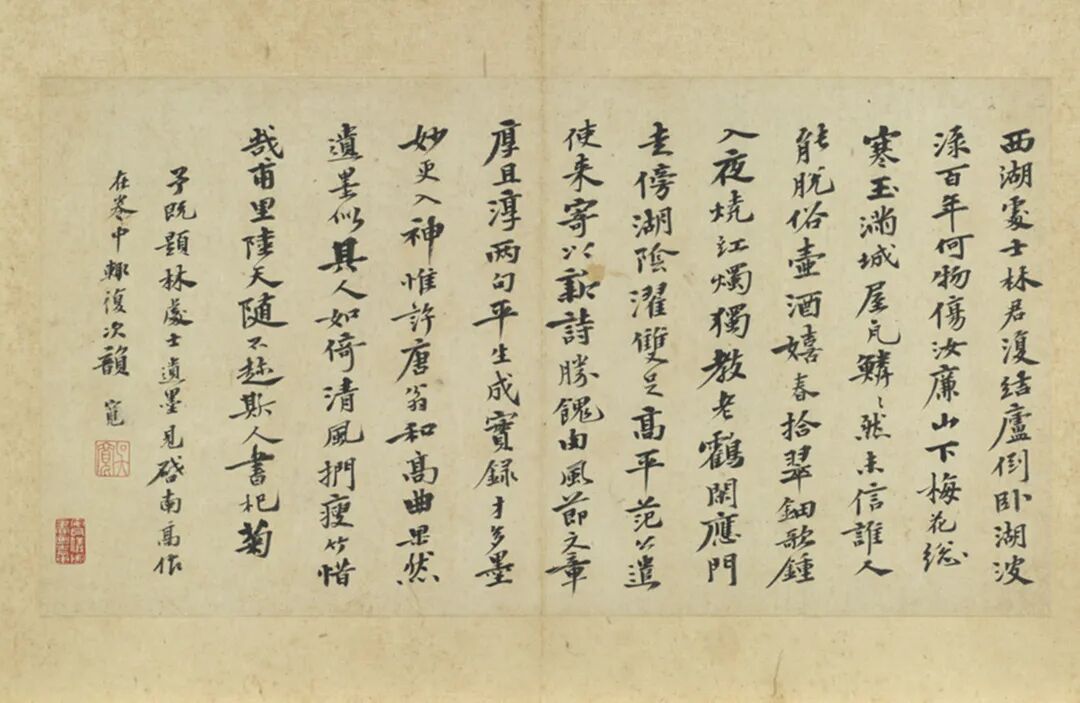 西湖處士林君復結廬倒卧湖波
渌百年何物傷汝廉山下梅花總
寒玉滿城屋瓦鱗〻然未信誰人
能脫俗壺酒嬉春拾翠鈿歌鍾
入夜燒江燭獨教老鶴閑應門
走傍湖陰濯雙足高平范公遣
使来寄以新詩勝餽肉風節文章
厚且淳兩句平生成實録才多墨
妙更入神惟許唐翁和高曲果然
遺墨似其人如倚清風捫瘦竹惜
哉甫里陸天隨不趂斯人書杞菊
予既題林處士遺墨見啓南高作
在卷中輙復次韻 寬